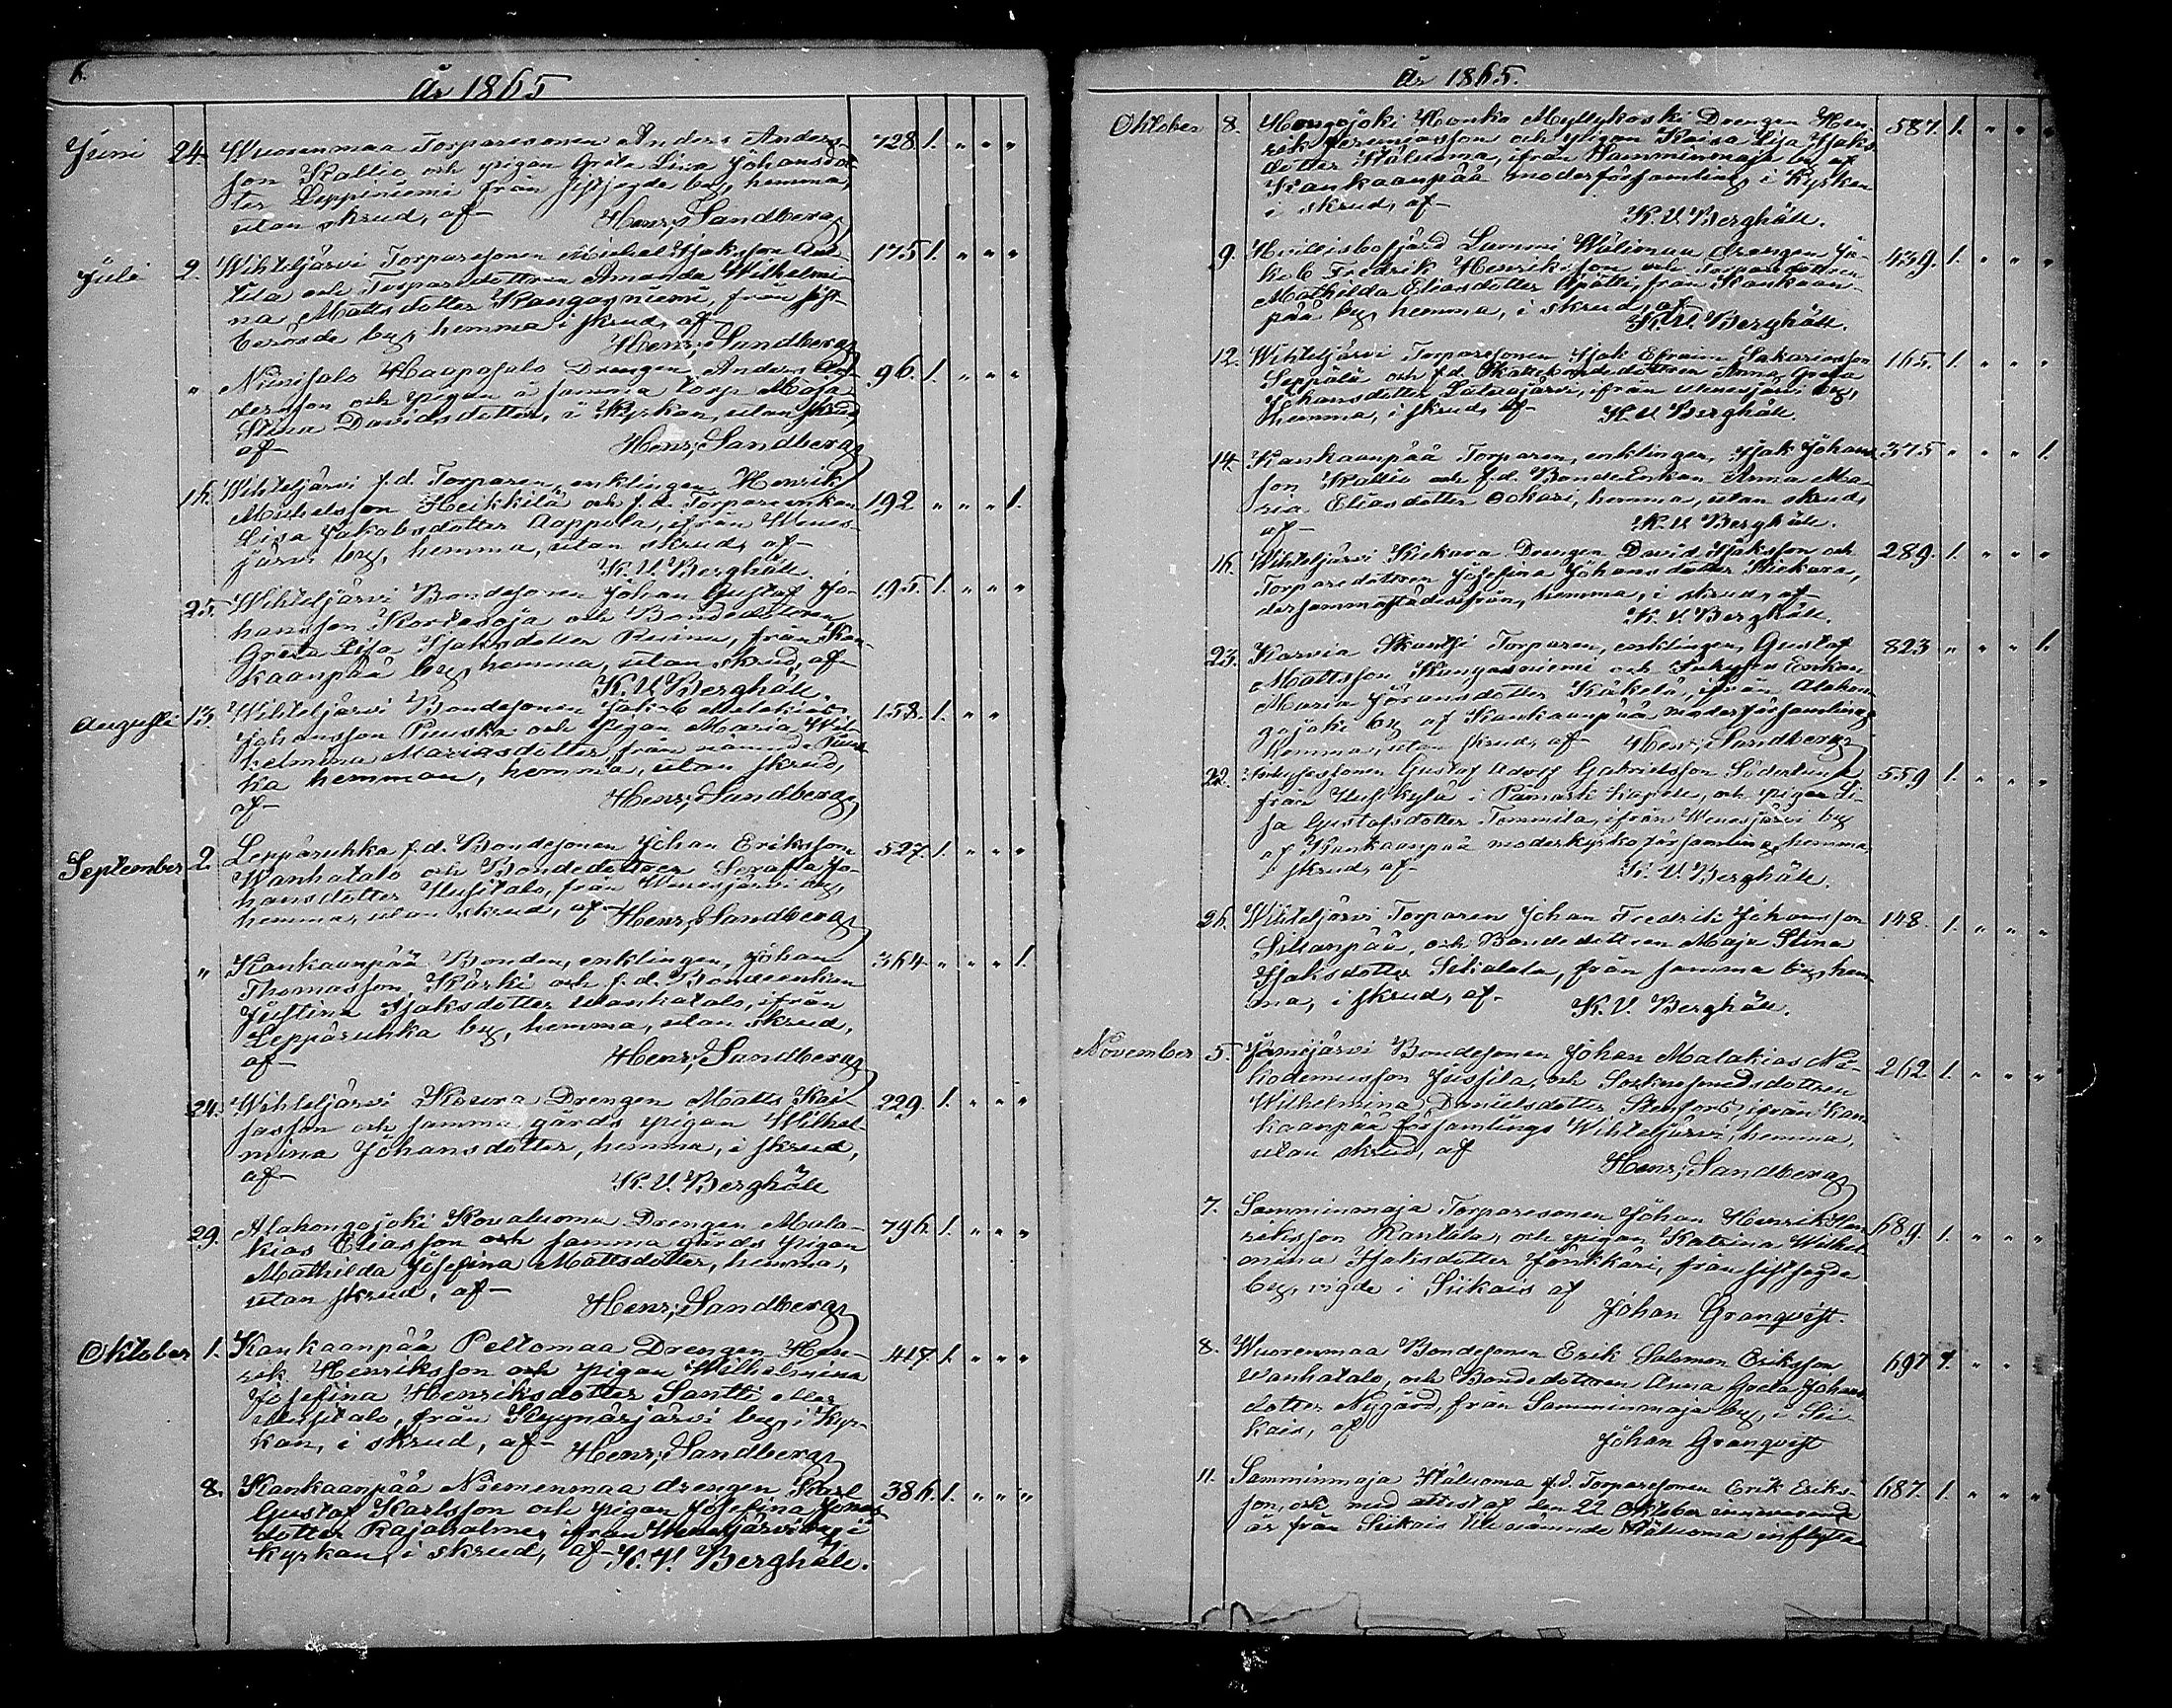 6.
År 1865
Juni 24. Wuorenmaa Torparesonen Anders Anders- 728. 1. " " "
son Kallio och pigan Greta Lisa Johansdot-
ter Leppiniemi från sistsagde by, hemma,
utan skrud, af
Henr. Sandberg
Juli 2. Wihteljärvi Torparesonen Michel Isaksson 175 1. " " "
och Torparedottren Amanda Wilhelmi-
na Mattsdotter Kangasniemi, från sist-
berörde by, hemma i skrud, af
Henr. Sandberg
" Niinisalo Haapasalo Drengen Anders An- 96. 1. " " "
dersson och pigan å samma torp Maja
Stina Davidsdotter, i Kyrkan, utan skrud,
af
Henr. Sandberg
16. Wihteljärvi f.d. Torparen, enklingen Henrik 192 " " " 1.
Michelsson Heikkilä och f.d. Torpareenkan
Lisa Jakobsdotter Aappola, ifrån Wenes-
järvi by, hemma, utan skrud, af
K. V. Berghäll.
25. Wihteljärvi Bondesonen Johan Gustaf Jo- 195. 1. " " "
hansson Kortesoja och Bondedottren
Greta Lisa Isaksdotter Ruinu, från Kan-
kaanpää by, hemma, utan skrud, af
K. V. Berghäll.
Augusti 13. Wihteljärvi Bondesonen Jakob Malakias 158. 1. " "
Johansson Puuska och Pigan Maria Wil-
helmina Mariasdotter, från nämnde Puus-
ka hemman, hemma, utan skrud,
af
Henr. Sandberg
September 2. Leppäruhka f.d. Bondesonen Johan Eriksson 527. 1. " " "
Wanhatalo och Bondedottren Serafia Jo-
hansdotter Uusitalo, från Wenesjärvi by,
hemma, utan skrud, af Henr. Sandberg
" Kankaanpää Bonden, enklingen, Johan 364 " " " 1.
Thomasson Kärki och f.d. Bondeenkan
Justina Isaksdotter Wanhatalo, ifrån
Leppäruhka by, hemma, utan skrud,
af
Henr. Sandberg
24. Wihteljärvi Koura Drengen Matts Kai- 229. 1. " " "
sasson och samma gårds pigan Wilhel-
mina Johansdotter, hemma, i skrud,
af
K. V. Berghäll
29. Alahongojoki Koualuoma Drengen Mala- 796. 1. " " "
kias Eliasson och samma gårds pigan
Mathilda Josefina Mattsdotter, hemma,
utan skrud, af
Henr. Sandberg
Oktober 1. Kankaanpää Peltomaa Drengen Hen- 417. 1. " " "
rik Henriksson och pigan Wilhelmina
Josefina Henriksdotter Santti eller
Uusitalo, från Kyynärjärvi by, i Kyr-
kan, i skrud, af Henr. Sandberg
8. Kankaanpää Niemenmaa drengen Karl 386. 1. " " "
Gustaf Karlsson och pigan Josefina Jonas-
dotter Rajaholme, ifrån Wenesjärvi by, i
Kyrkan, i skrud, af K. V. Berghäll.
År 1865.
Oktober 8. Hongojoki Honko Myllykoski Drengen Hen- 587. 1. " " "
rik Jeremiasson och pigan Kaisa Lisa Isaks-
dotter Häluoma, ifrån Samminmaja by af
Kankaanpää moderförsamling, i Kyrkan
i skrud, af
K. V. Berghäll.
9. Lummi Drengen Ja- 439. 1. " " "
kob Fredrik Henriksson och Torparedottren
Mathilda Eliasdotter från Kankaan-
pää by, hemma, i skrud, af
K. V. Berghäll.
12. Wihteljärvi Torparesonen Isak Efraim Sakariasson 165. 1. " " "
Seppälä och f.d. dottren Anna Greta
Johansdotter Latvajärvi, ifrån Wenesjärvi by,
hemma, i skrud, af K. V. Berghäll.
14. Kankaanpää Torparen, enklingen, Isak Johans- 375 " " " 1.
son Kallio och f.d. Bondeenkan Anna Ma-
ria Eliasdotter Ockari, hemma, utan skrud,
af
K. V. Berghäll.
16. Wihteljärvi Kiekara Drengen David Isaksson och 289. 1. " " "
Torparedottren Josefina Johansdotter Kiekara,
dersammastädesifrån, hemma, i skrud, af
K. V. Berghäll.
23. Karvia Skantsi Torparen, enklingen, Gustaf 823 " " " 1.
Mattsson Kangasniemi och Inhyses Enkan
Maria Göransdotter Käkelä, ifrån Alahon-
gojoki by af Kankaanpää moderförsamling,
hemma, utan skrud, af Henr. Sandberg
22. Inhysessonen Gustaf Adolf Gabrielsson Söderlund 559 1. " " "
från Uusikylä i Påmark Kapell, och pigan Li-
sa Gustafsdotter Tommila, ifrån Wenesjärvi by
af Kankaanpää moderkyrko församling, hemma,
i skrud, af
K. V. Berghäll.
26. Wihteljärvi Torparen Johan Fredrik Johansson 148. 1. " " "
Sillanpää, och Bondedottren Maja Stina
Isaksdotter Sikalala, från samma by, hem-
ma, i skrud, af K. V. Berghäll.
November 5. Jämijärvi Bondesonen Johan Malakias Ni- 262 1. " " "
kodemusson Jussila, och Socknesmedsdottren
Wilhelmina Danielsdotter Stenfors, ifrån Kan-
kaanpää församlings Wihteljärvi, hemma,
utan skrud, af
Henr. Sandberg
7. Samminmaja Torparesonen Johan Henrik Hen- 689. 1. " " "
riksson Rantala, och pigan Katrina Wilhel-
mina Isaksdotter Jönkkäri, från sistsagde
by, vigde i Siikais af
Johan Granqvist.
8. Wuorenmaa Bondesonen Erik Salomon Eriksson 697 1. " "
Wanhatalo, och Bondedottren Anna Greta Johans-
dotter Nygård, från Samminmaja by, i Sii-
kais, af
Johan Granqvist
11. Samminmaja Häluoma f.d. Torparesonen Erik Eriks- 687. 1. " " "
son, och med attest af den 22 Oktober innevarande
år från Siikais till nämnde Häluoma inflytta-